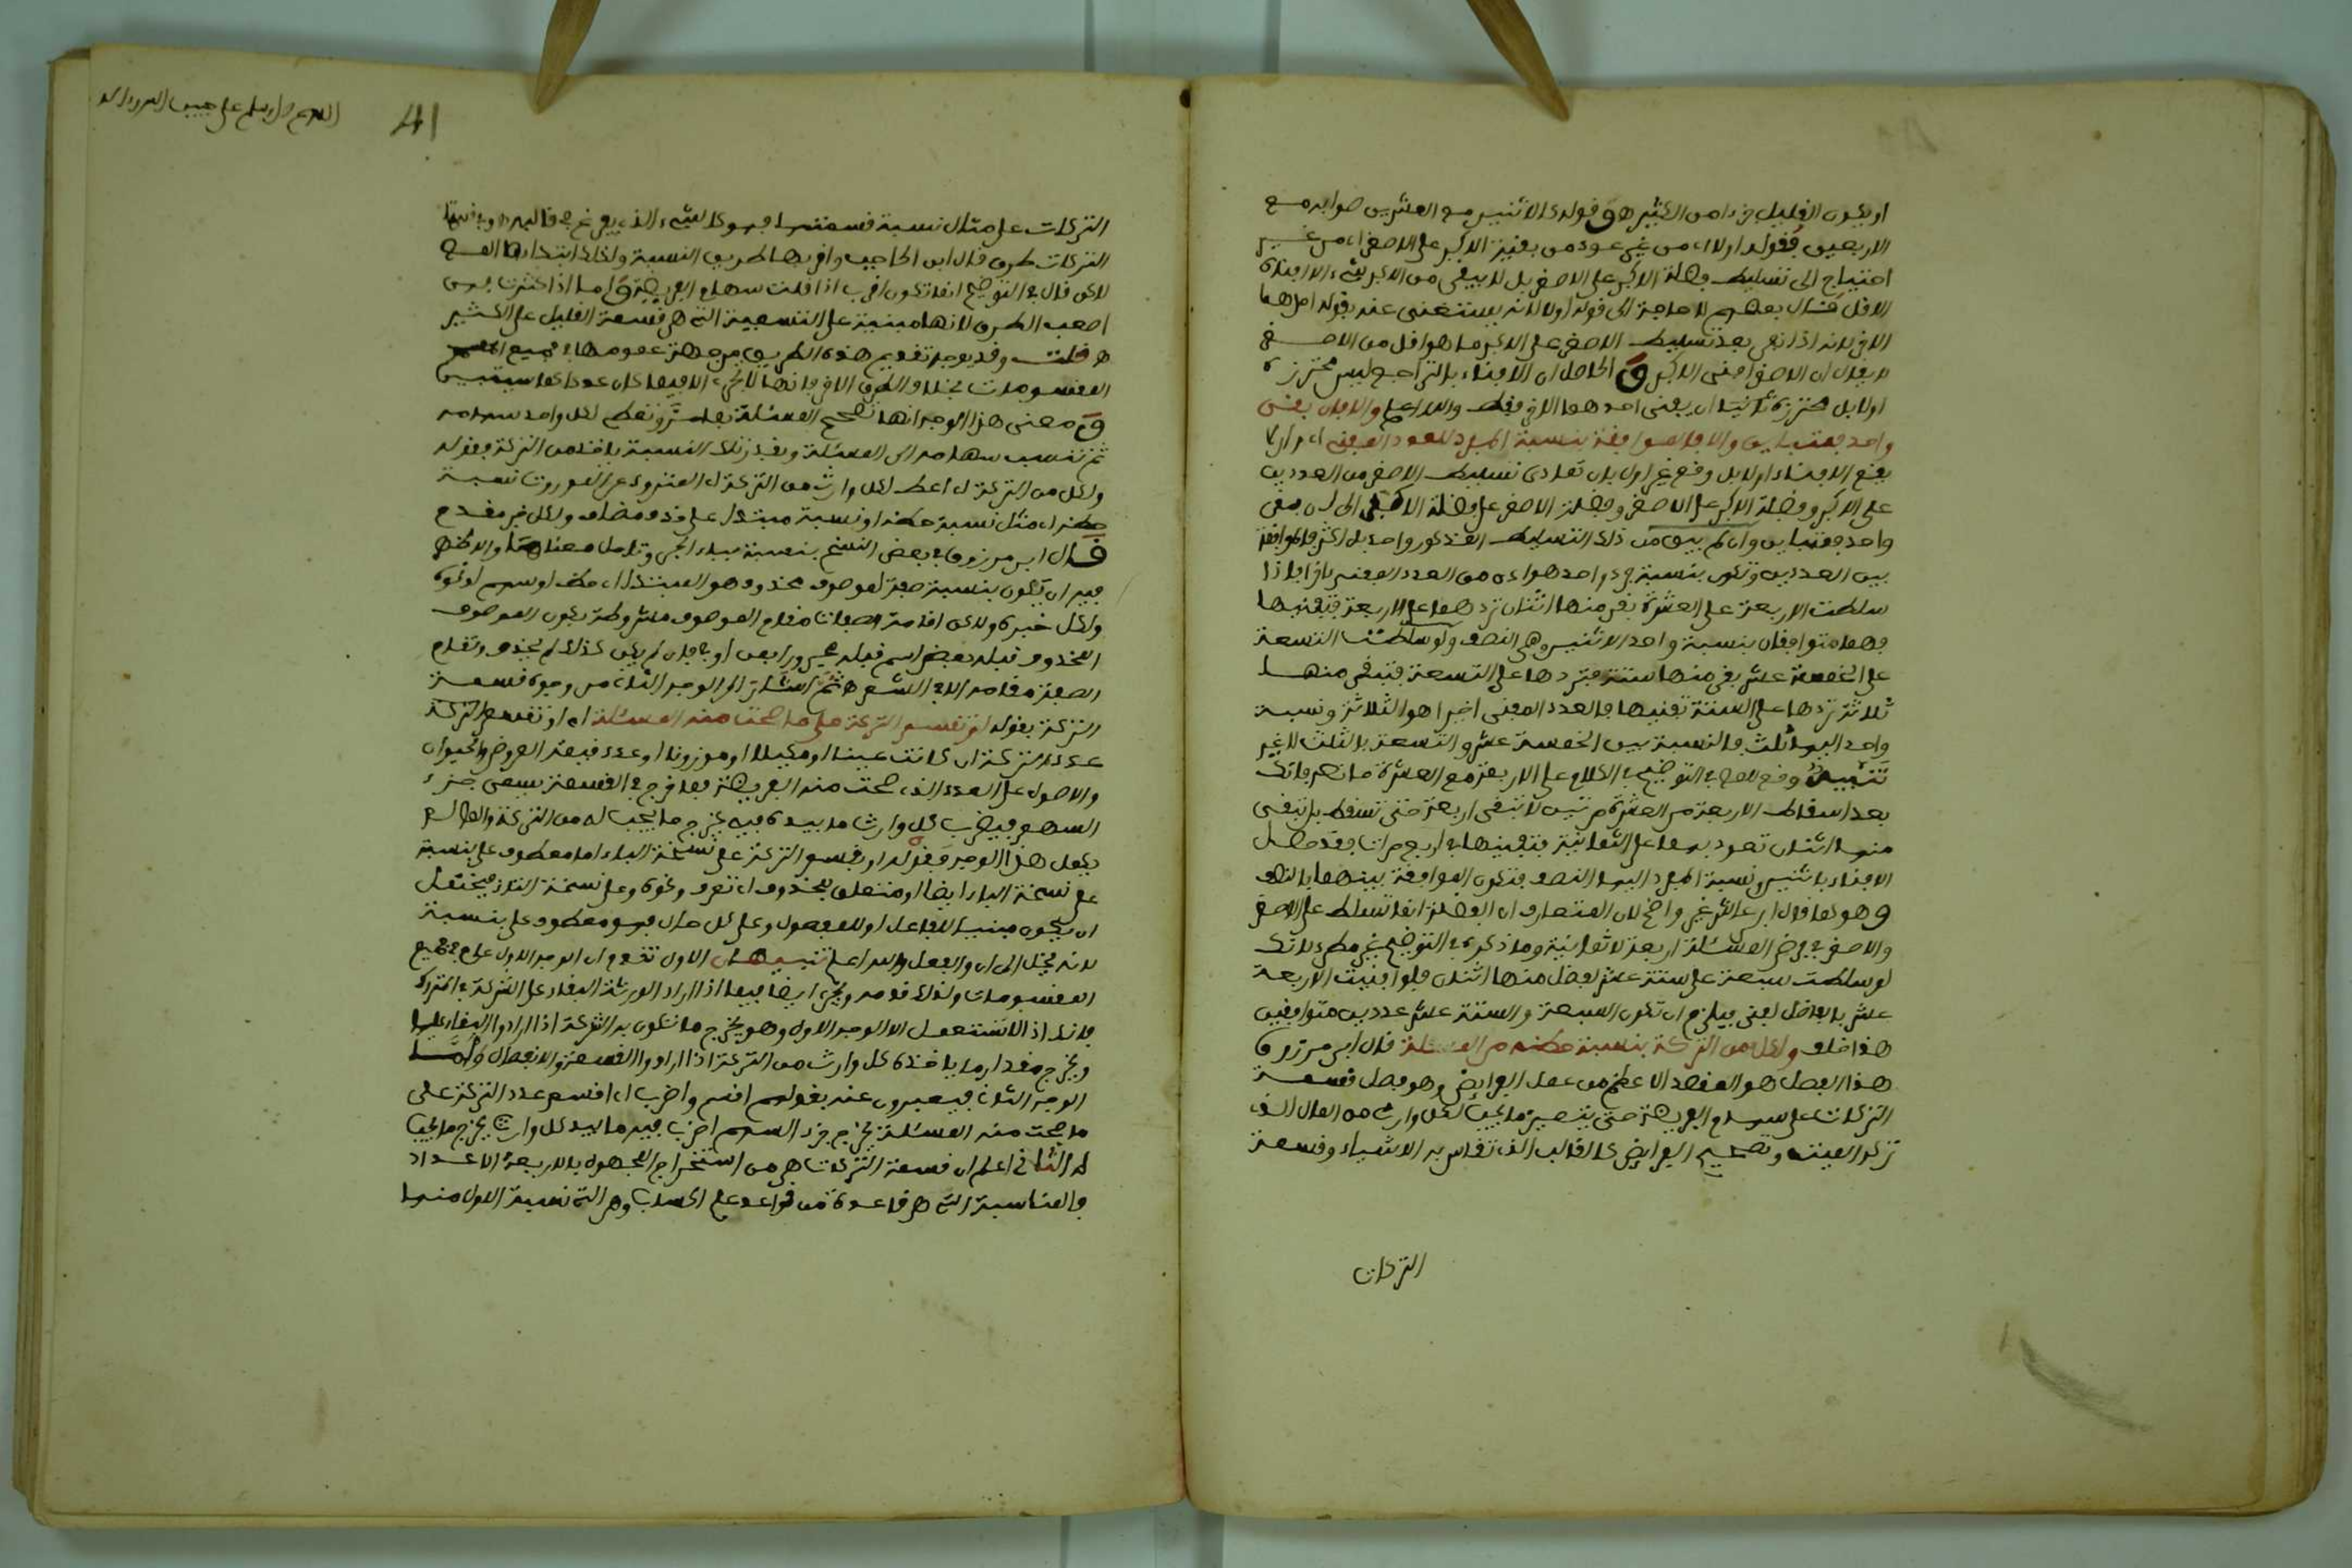 او يكون القليل جزءا من الكثير هـ ق قوله كالاثنين مع العشرين صوابه مع
الاربعين فقوله اولا اي من غير عودة من بقية الاكبر على الاصغر اي من غير
احتياج الى تسليط فضلة الاكبر على الاصغر بل لا يبقى من الاكبر شيء الا افناه
الاقل قال بعضهم لا حاجة الى قوله اولا لانه يستغنى عنه بقوله احدهما
الاخر لانه اذا بقي بعد تسليط الاصغر على الاكبر ما هو اقل من الاصغر
لا يقال ان الاصغر افنى الاكبر ق الحاصل ان الافناء بالتراجع ليس محترزه
اولا بل محترزه ان يفنى احدهما الاخر فقط والله اعلم والا فان بقي
واحد فمتباين والا فالموافقة بنسبة المفرد للعدد المفني اي وان لا
يقع الافناء اولا بل وقع غير اول بان تمادى تسليط الاصغر من العددين
على الاكبر وفضلة الاكبر على الاصغر وفضلة الاصغر على فضلة الاكبر الى ان بقي
واحد فمتباين وان لم يبق من ذلك التسليط المذكور واحد بل اكثر فالموافقة
بين العددين وتكون بنسبة جزء واحد هوائي من العدد المفني فاذا
سلطت الاربعة على العشرة بقي منها اثنان تردهما على الاربعة فتفنيها
فهما متوافقان بنسبة واحد للاثنين وهي النصف ولو سلطت التسعة
على الخمسة عشر بقي منها ستة فتردها على التسعة فتبقى منها
ثلاثة تردها على الستة تفنيها فالعدد المفني اخيرا هو الثلاثة ونسبة
واحد اليها ثلث فالنسبة بين الخمسة عشر والتسعة بالثلث لا غير
تنبيه وقع في التوضيح في الكلام على الاربعة مع العشرة ما نصه فانك
بعد اسقاط الاربعة من العشرة مرتين لا تبقى اربعة حتى تسقط بل تبقى
منها اثنان تعود بهما على الثمانية فتفنيها في اربع مرات فقد حصل
الافناء باثنين ونسبة المفرد اليهما النصف فتكون الموافقة بينهما بالنصف
وهو كما قال ابن غير واضح لان المتعارف ان الفضلة انما تسلط على الاصغر
والاصغر في فرض المسئلة اربعة لا ثمانية وما ذكره في التوضيح غير مطرد لانك
لو سلطت سبعة على ستة عشر لفضل منها اثنان فلو افنيت الاربعة
عشر بالفاضل لفني فيلزم ان تكون السبعة والستة عشر عددين متوافقين
هذا خلف ولكل من التركة بنسبة حظه من المسئلة قال ابن مرزوق
هذا الفصل هو المقصد الاعظم من عمل الفرائض وهو فصل قسمة
التركات على سهام الفريضة حتى يتميز ما يجب لكل وارث من المال الذي
تركه الميت وتصحيح الفرائض كالقالب الذي تقاس به الاشياء وقسمة
التركات
اللهم صل وسلم على حبيب
41
التركات على مثال نسبة قسمتها فهو كالشيء الذي يفرغ في قالبه
التركات طرق قال ابن الحاجب واقربها طريق النسبة ولذلك ابتدا بها المصـ
لكن قال في التوضيح انما تكون اقرب اذا قلت سهام الفريضة ق اما اذا كثرت فهي
اصعب الطرق لانها مبنية على التسمية التي هي قسمة القليل على الكثير
هـ قلت وقد يوجه تقديم هذه الطريق من جهة عمومها في جميع
المقسومات بخلاف الطرق الاخر فانها لا تجري الا فيما كان عددا كما سيتبين
ق معنى هذا الوجه انها تصحح المسئلة وتعلم لكل واحد سهامه
ثم تنسب سهامه الى المسئلة وبقدر تلك النسبة ياخذ من التركة فقوله
ولكل من التركة اي اعط لكل وارث من التركة اي المتروك عن الموروث نسبة
حظه اي مثل نسبة حظه او نسبة مبتدا على حذف مضاف ولكل خبر مقدم
قال ابن مرزوق في بعض النسخ بنسبة بباء الجر وتامل معناها والاظهر
فيه ان يكون بنسبة صفة لموصوف محذوف هو المبتدا اي حظ او سهم او نحوه
ولكل خبره ولكن اقامة الصفات مقام الموصوف مشروطة بكون الموصوف
المحذوف قبله بعض اسم قبله مجرور بمن او في فان لم يكن كذلك لم يحذف وتقام
الصفة مقامه الا في الشعر هـ ثم اشار الى الوجه الثاني من وجوه قسمة
التركة بقوله او تقسم التركة على ما صحت منه المسئلة اي او تقسم التركة
عدد التركة ان كانت عينا او مكيلا او موزونا او عدد قيمة العروض والحيوان
والاصول على العدد الذي صحت منه الفريضة فما خرج في القسمة يسمى جزء
السهم فيضرب لكل وارث ما بيده فيه يخرج ما يجب له من التركة والطالب
يعمل هذا الوجه فقوله او بقسم التركة على نسخة الباء اما معطوف على بنسبة
على نسخة الباء ايضا او متعلق بمحذوف اي تعرف ونحوه وعلى نسخة التاء فيحتمل
ان يكون مبنيا للفاعل او للمفعول وعلى كل حال فهو معطوف على بنسبة
لانه يئول الى ان والفعل والله اعلم تنبيهان الاول تقدم ان الوجه الاول عام في جميع
المقسومات ولذلك قدمه ويجري ايضا فيما اذا اراد الورثة البقاء على الشركة في المتروك
فانك اذا استعمل الا الوجه الاول وهو يخرج ما تكون به الشركة اذا ارادوا البقاء عليها
ويخرج مقدار ما ياخذه كل وارث من التركة اذا ارادوا القسمة والانفصال واما
الوجه الثاني فيعبرون عنه بقولهم اقسم واضرب اي اقسم عدد التركة على
ما صحت منه المسئلة يخرج جزء السهم اضرب فيه ما بيد كل وارث يخرج ما يجب
له الثاني اعلم ان قسمة التركات هي من استخراج المجهول بالاربعة الاعداد
فالمتناسبة التي هي قاعدة من قواعد علم الحساب وهي التي نسبة الاول منها